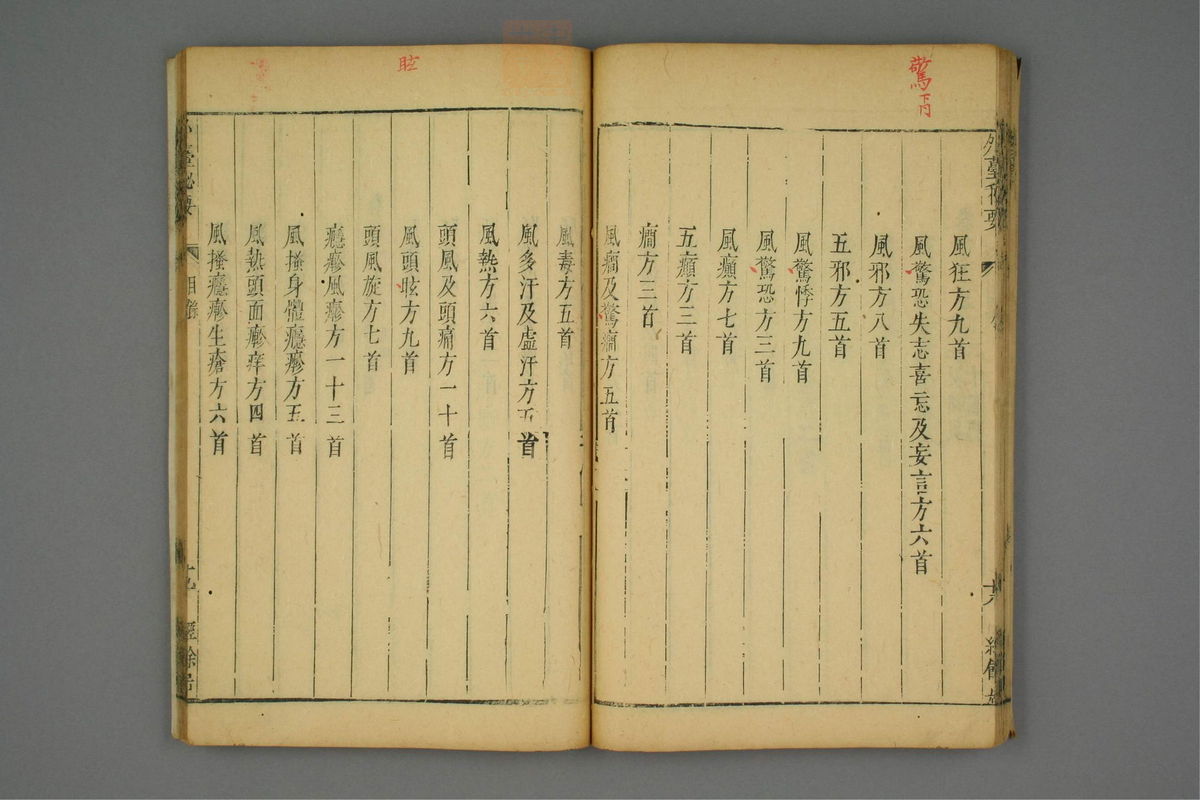 驚
外臺秘要
風狂方九首
風驚恐失志喜忘及妄言方六首
風邪方八首
五邪方五首
風驚悸方九首
風驚恐方三首
風癲方七首
五癲方三首
癇方三首
風癇及驚癇方五首
十八
經餘居
眩
風毒方五首
風多汗及虛汗方五首
風熱方六首
頭風及頭痛方一十首
風頭眩方九首
頭風旋方七首
癮疹風疹方一十三首
風搔身體癮疹方五首
風熱頭面疹痒方四首
風搔癮疹生瘡方六首
臺秘要
目錄
十九
經餘居